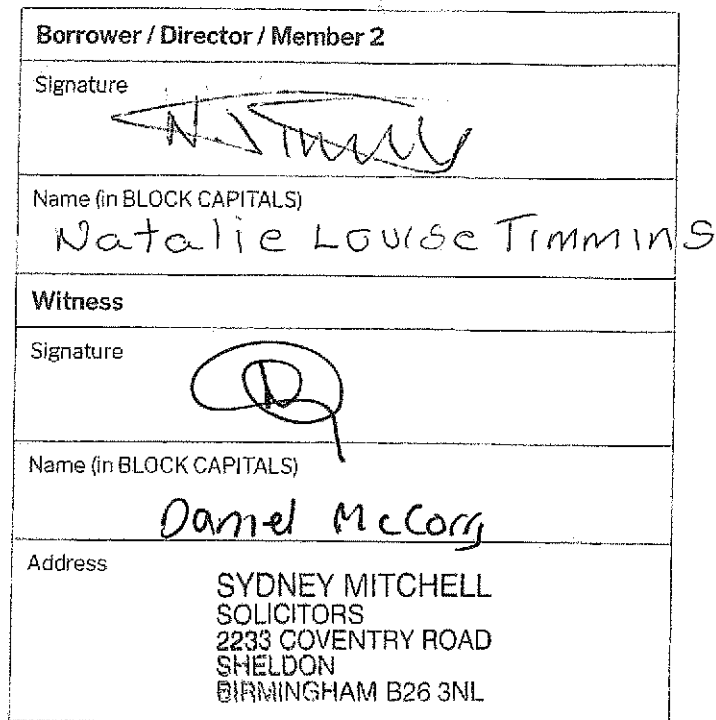 Borrower / Director / Member 2
Signature
N. Timmins
Name (in BLOCK CAPITALS)
Natalie Louise Timmins
Witness
Signature
Name (in BLOCK CAPITALS)
Daniel McCorry
Address
SYDNEY MITCHELL
SOLICITORS
2233 COVENTRY ROAD
SHELDON
BIRMINGHAM B26 3NL